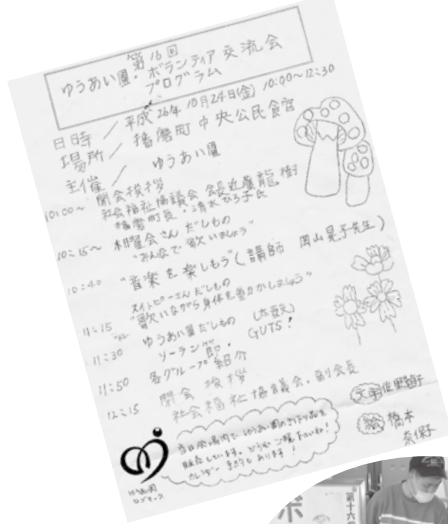 第16回
ゆうあい園・ボランティア交流会
プログラム
日時／平成26年10月24日(金) 10:00〜12:30
場所／播磨町中央公民館
主催／ゆうあい園
10:00〜 開会挨拶
社会福祉協議会 会長近藤龍樹
播磨町長・清水ひろ子氏
10:15〜 木曜会さんだしもの
"みんなで歌いましょう"
10:40 "音楽を楽しもう"(講師 岡山晃子先生)
スイトピーさんだしもの
"歌いながら身体を動かしましょう"
11:15 ゆうあい園だしもの (太鼓)
ソーラン節・GUTS!
11:30 各グループ紹介
11:50 閉会挨拶
12:15 社会福祉協議会・副会長
当日会場内でゆうあい園の
販売しています。どうかご購下さいね!
もあります!
ゆうあい園
ロゴマーク
橋本
奈保子
ボ
第十六